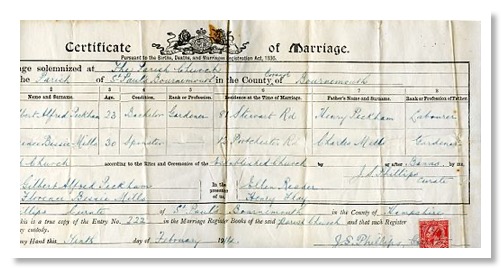 Certificate of Marriage.
Pursuant to the Births, Deaths, and Marriages Registration Act, 1836.
age solemnized at The Parish Church
the Parish of St Paul's Bournemouth in the County of Bournemouth
2 3 4 5 6 7 8
Name and Surname. Age. Condition. Rank or Profession. Residence at the Time of Marriage. Father's Name and Surname. Rank or Profession of Father
bert Alfred Peckham 23 Bachelor Gardener 81 Stewart Rd Henry Peckham Labourer
Bessie Mills 30 Spinster Portchester Rd Charles Mills Gardener
Church according to the Rites and Ceremonies of the Established Church by or after Banns by me,
J.S. Phillips
Curate
Gilbert Alfred Peckham In the presence of us, Ellen Reader
Florence Bessie Mills Henry
llips Curate of St Paul's Bournemouth in the County of Hampshire
is is a true copy of the Entry No. 222 in the Marriage Register Books of the said Parish Church and that such Register
my custody.
my Hand this day of February
Phillips